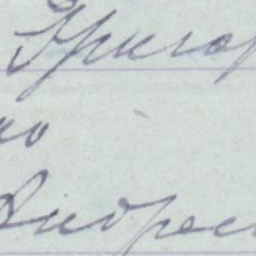 Григор
но
Андрее